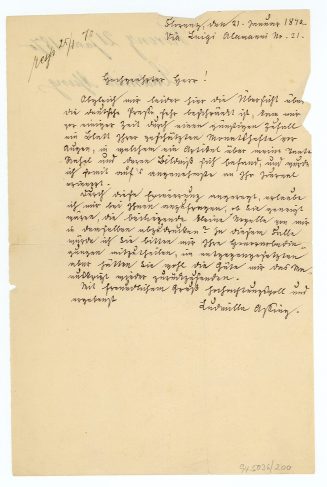 Florenz, den 21. Januar 1872
Via Luigi Alamanni Nr. 21.
Hochgeehrter Herr!
Obgleich mir leider hier die Übersicht über
die deutsche Presse sehr beschränkt ist, kam mir
vor einiger Zeit durch einen günstigen Zufall
ein Blatt Ihrer geschätzten Monatshefte vor
Augen, in welchem ein Artikel über meine Tante
Rahel und deren Bildniß sich befand, und wurde
ich somit auf's angenehmste an Ihr Journal
erinnert.
Durch diese Erinnerung angeregt, erlaube
ich mir bei Ihnen anzufragen, ob Sie geneigt
wären die beiliegende kleine Novelle von mir
in demselben abzudrucken? In diesem Falle
würde ich Sie bitten mir Ihre Honorarbedin-
gungen mitzutheilen, im entgegengesetzten
aber hätten Sie wohl die Güte mir das Ma-
nuskript wieder zurückzusenden.
Mit freundlichem Gruß hochachtungsvoll und
ergebenst
Ludmilla Assing.